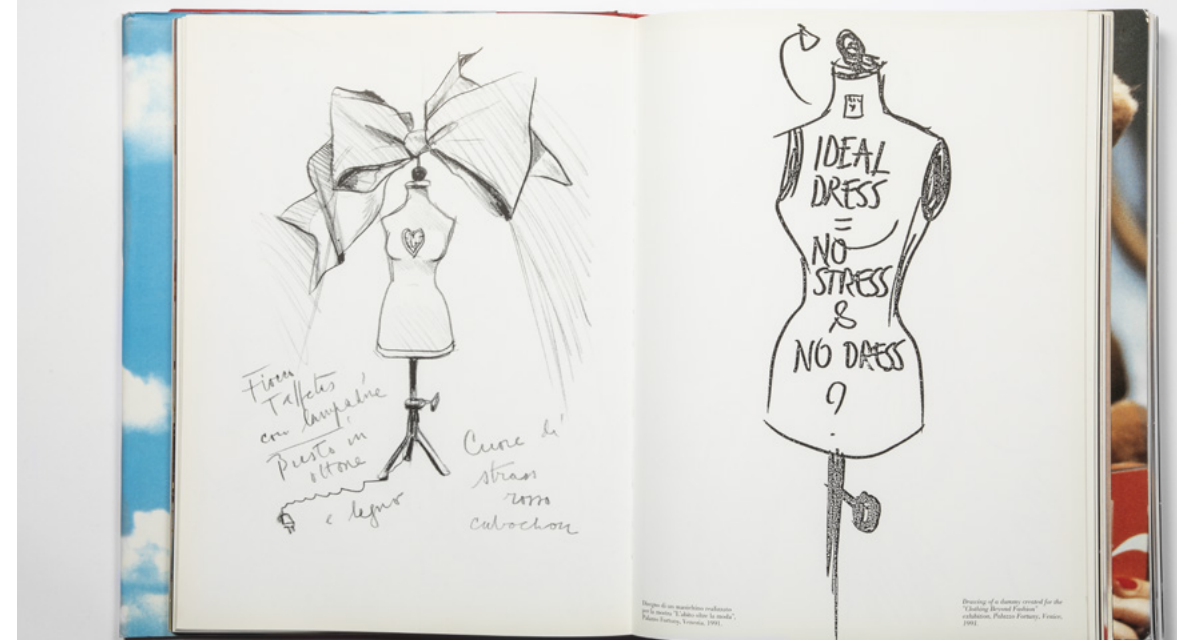 Fiocco
Taffetas
con lampadine
Busto in
ottone
e legno
Cuore di
strass
rosso
cabochon
IDEAL
DRESS
=
NO
STRESS
&
NO DRESS
?
Disegno di un manichino realizzato
per la mostra "L'abito oltre la moda",
Palazzo Fortuny, Venezia, 1991.
Drawing of a dummy created for the
"Clothing Beyond Fashion"
exhibition, Palazzo Fortuny, Venice,
1991.